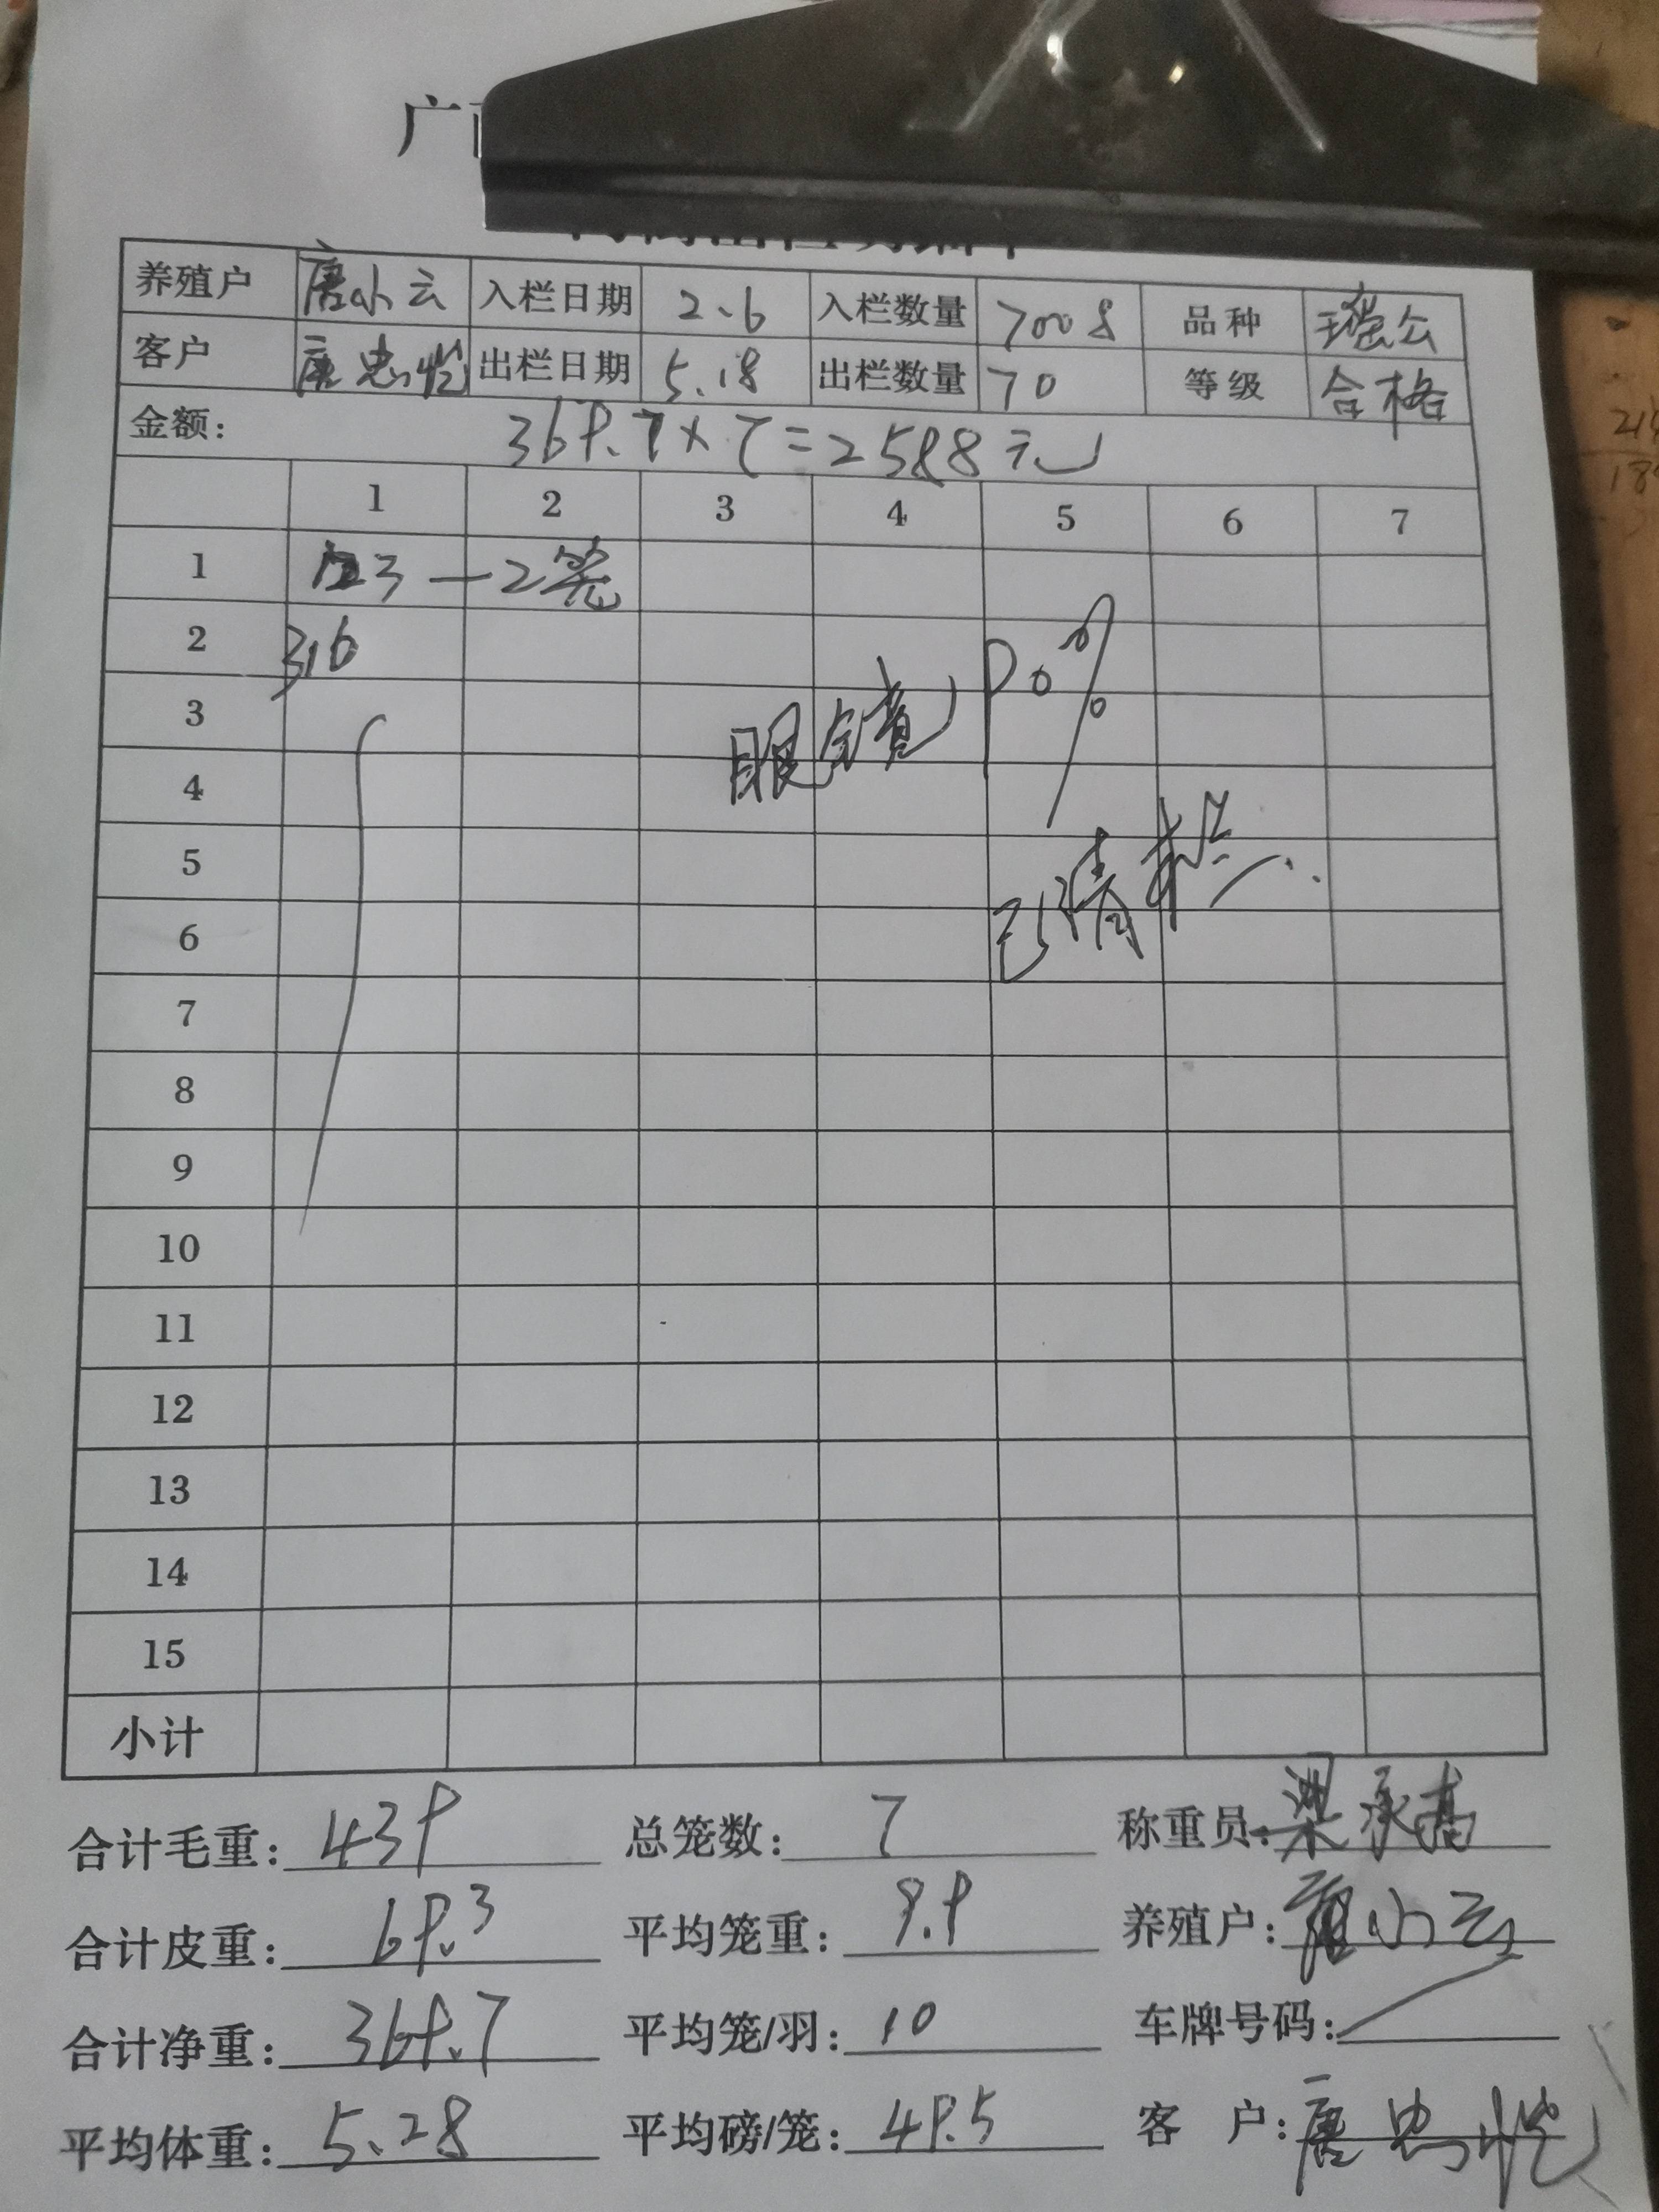 广西
养殖户 唐小云 入栏日期 2.6 入栏数量 7008 品种 瑶公
客户 唐忠恺 出栏日期 5.18 出栏数量 70 等级 合格
金额: 369.7×7=2588元
1 2 3 4 5 6 7
1 3—2笼
2 316
3
4 眼镜90%
5
6 已清栏..
7
8
9
10
11
12
13
14
15
小计
合计毛重: 439 总笼数: 7 称重员: 梁承高
合计皮重: 69.3 平均笼重: 9.9 养殖户: 唐小云
合计净重: 369.7 平均笼/羽: 10 车牌号码:
平均体重: 5.28 平均磅/笼: 49.5 客 户: 唐忠恺